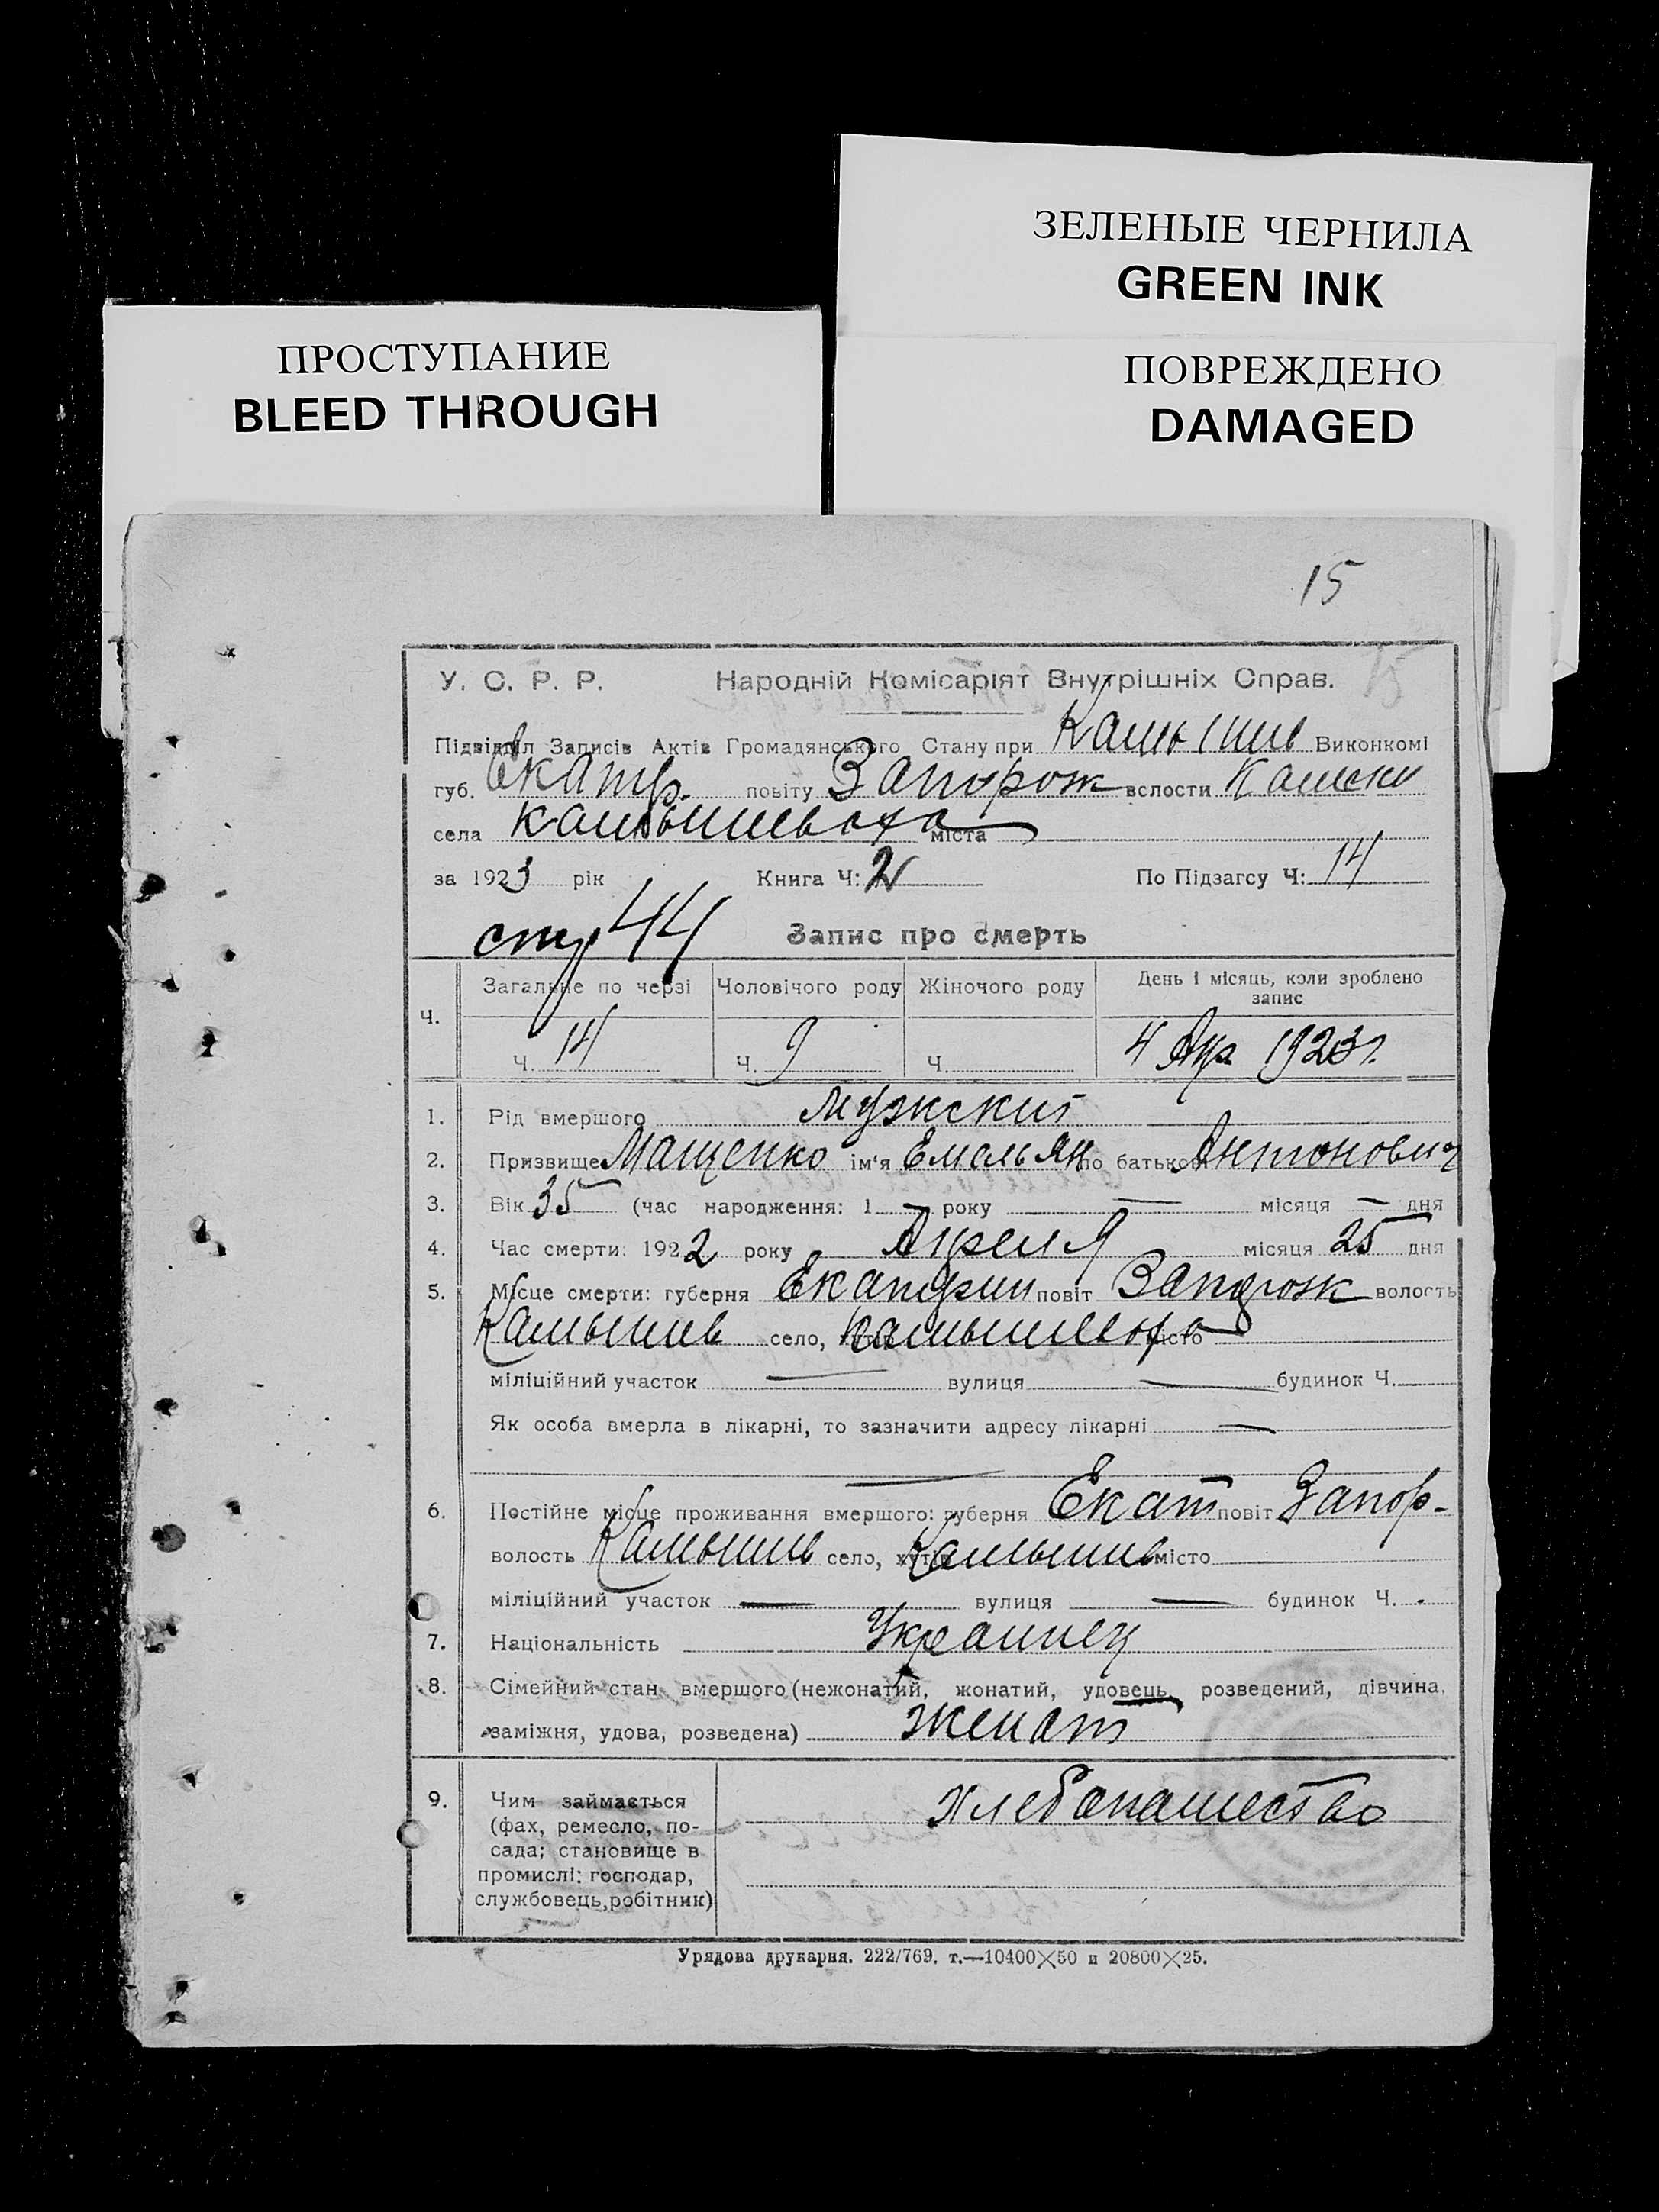 ЗЕЛЕНЫЕ ЧЕРНИЛА
GREEN INK
ПРОСТУПАНИЕ
BLEED THROUGH
ПОВРЕЖДЕНО
DAMAGED
15
У. С. Р. Р. Народній Комісаріят Внутрішніх Справ.
Підвідділ Записів Актів Громадянського Стану при Камышев Виконкомі
губ. Екатр. повіту Запорож волости
села Камышеваха міста
за 1923 рік Книга Ч: 2 По Підзагсу Ч: 14
стр 44 Запис про смерть
Ч. Загальне по черзі Чоловічого роду Жіночого роду День і місяць, коли зроблено запис
Ч. 14 Ч. 9 Ч. 4 Апр 1923 г.
1. Рід вмершого мужский
2. Призвище Мащенко ім'я Емельян по батькові Антонович
3. Вік 35 (час народження: 1 — року — місяця — дня
4. Час смерти: 1922 року Апреля місяця 25 дня
5. Місце смерти: губерня Екатерин повіт Запорож волость
Камышев село, хутір Камышеваха місто
міліційний участок — вулиця — будинок Ч.
Як особа вмерла в лікарні, то зазначити адресу лікарні —
—
6. Постійне місце проживання вмершого: губерня Екат повіт Запор-
волость Камышев село, хутір Камышев місто
міліційний участок — вулиця — будинок Ч.
7. Національність Украинец
8. Сімейний стан вмершого (нежонатий, жонатий, удовець, розведений, дівчина,
заміжня, удова, розведена) женат
9. Чим займається хлебопашество
(фах, ремесло, по-
сада; становище в
промислі: господар,
службовець, робітник)
Урядова друкарня. 222/769. т.—10400×50 и 20800×25.